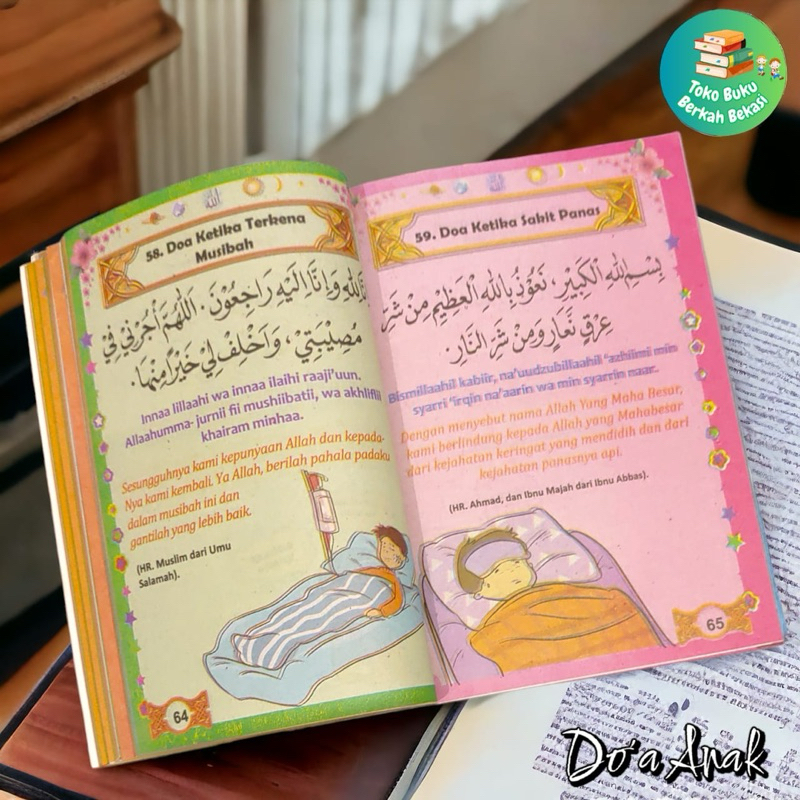 Toko Buku
Berkah Bekasi
58. Doa Ketika Terkena
Musibah
لِلّٰهِ وَاِنَّا اِلَيْهِ رَاجِعُوْنَ. اَللّٰهُمَّ أْجُرْنِيْ فِيْ
مُصِيْبَتِيْ، وَاَخْلِفْ لِيْ خَيْرًا مِنْهَا.
Innaa lillaahi wa innaa ilaihi raaji'uun.
Allaahumma- jurnii fii mushiibatii, wa akhlifli
khairam minhaa.
Sesungguhnya kami kepunyaan Allah dan kepada-
Nya kami kembali. Ya Allah, berilah pahala padaku
dalam musibah ini dan
gantilah yang lebih baik.
(HR. Muslim dari Umu
Salamah).
64
59. Doa Ketika Sakit Panas
بِسْمِ اللهِ الْكَبِيْرِ، نَعُوْذُ بِاللهِ الْعَظِيْمِ مِنْ شَرِّ
عِرْقٍ نَّعَّارٍ وَمِنْ شَرِّ النَّارِ.
Bismillaahil kabiir, na'uudzubillaahil 'azhiimi min
syarri 'irqin na'aarin wa min syarrin naar.
Dengan menyebut nama Allah Yang Maha Besar,
kami berlindung kepada Allah yang Mahabesar
dari kejahatan keringat yang mendidih dan dari
kejahatan panasnya api.
(HR. Ahmad, dan Ibnu Majah dari Ibnu Abbas).
65
Do'a Anak